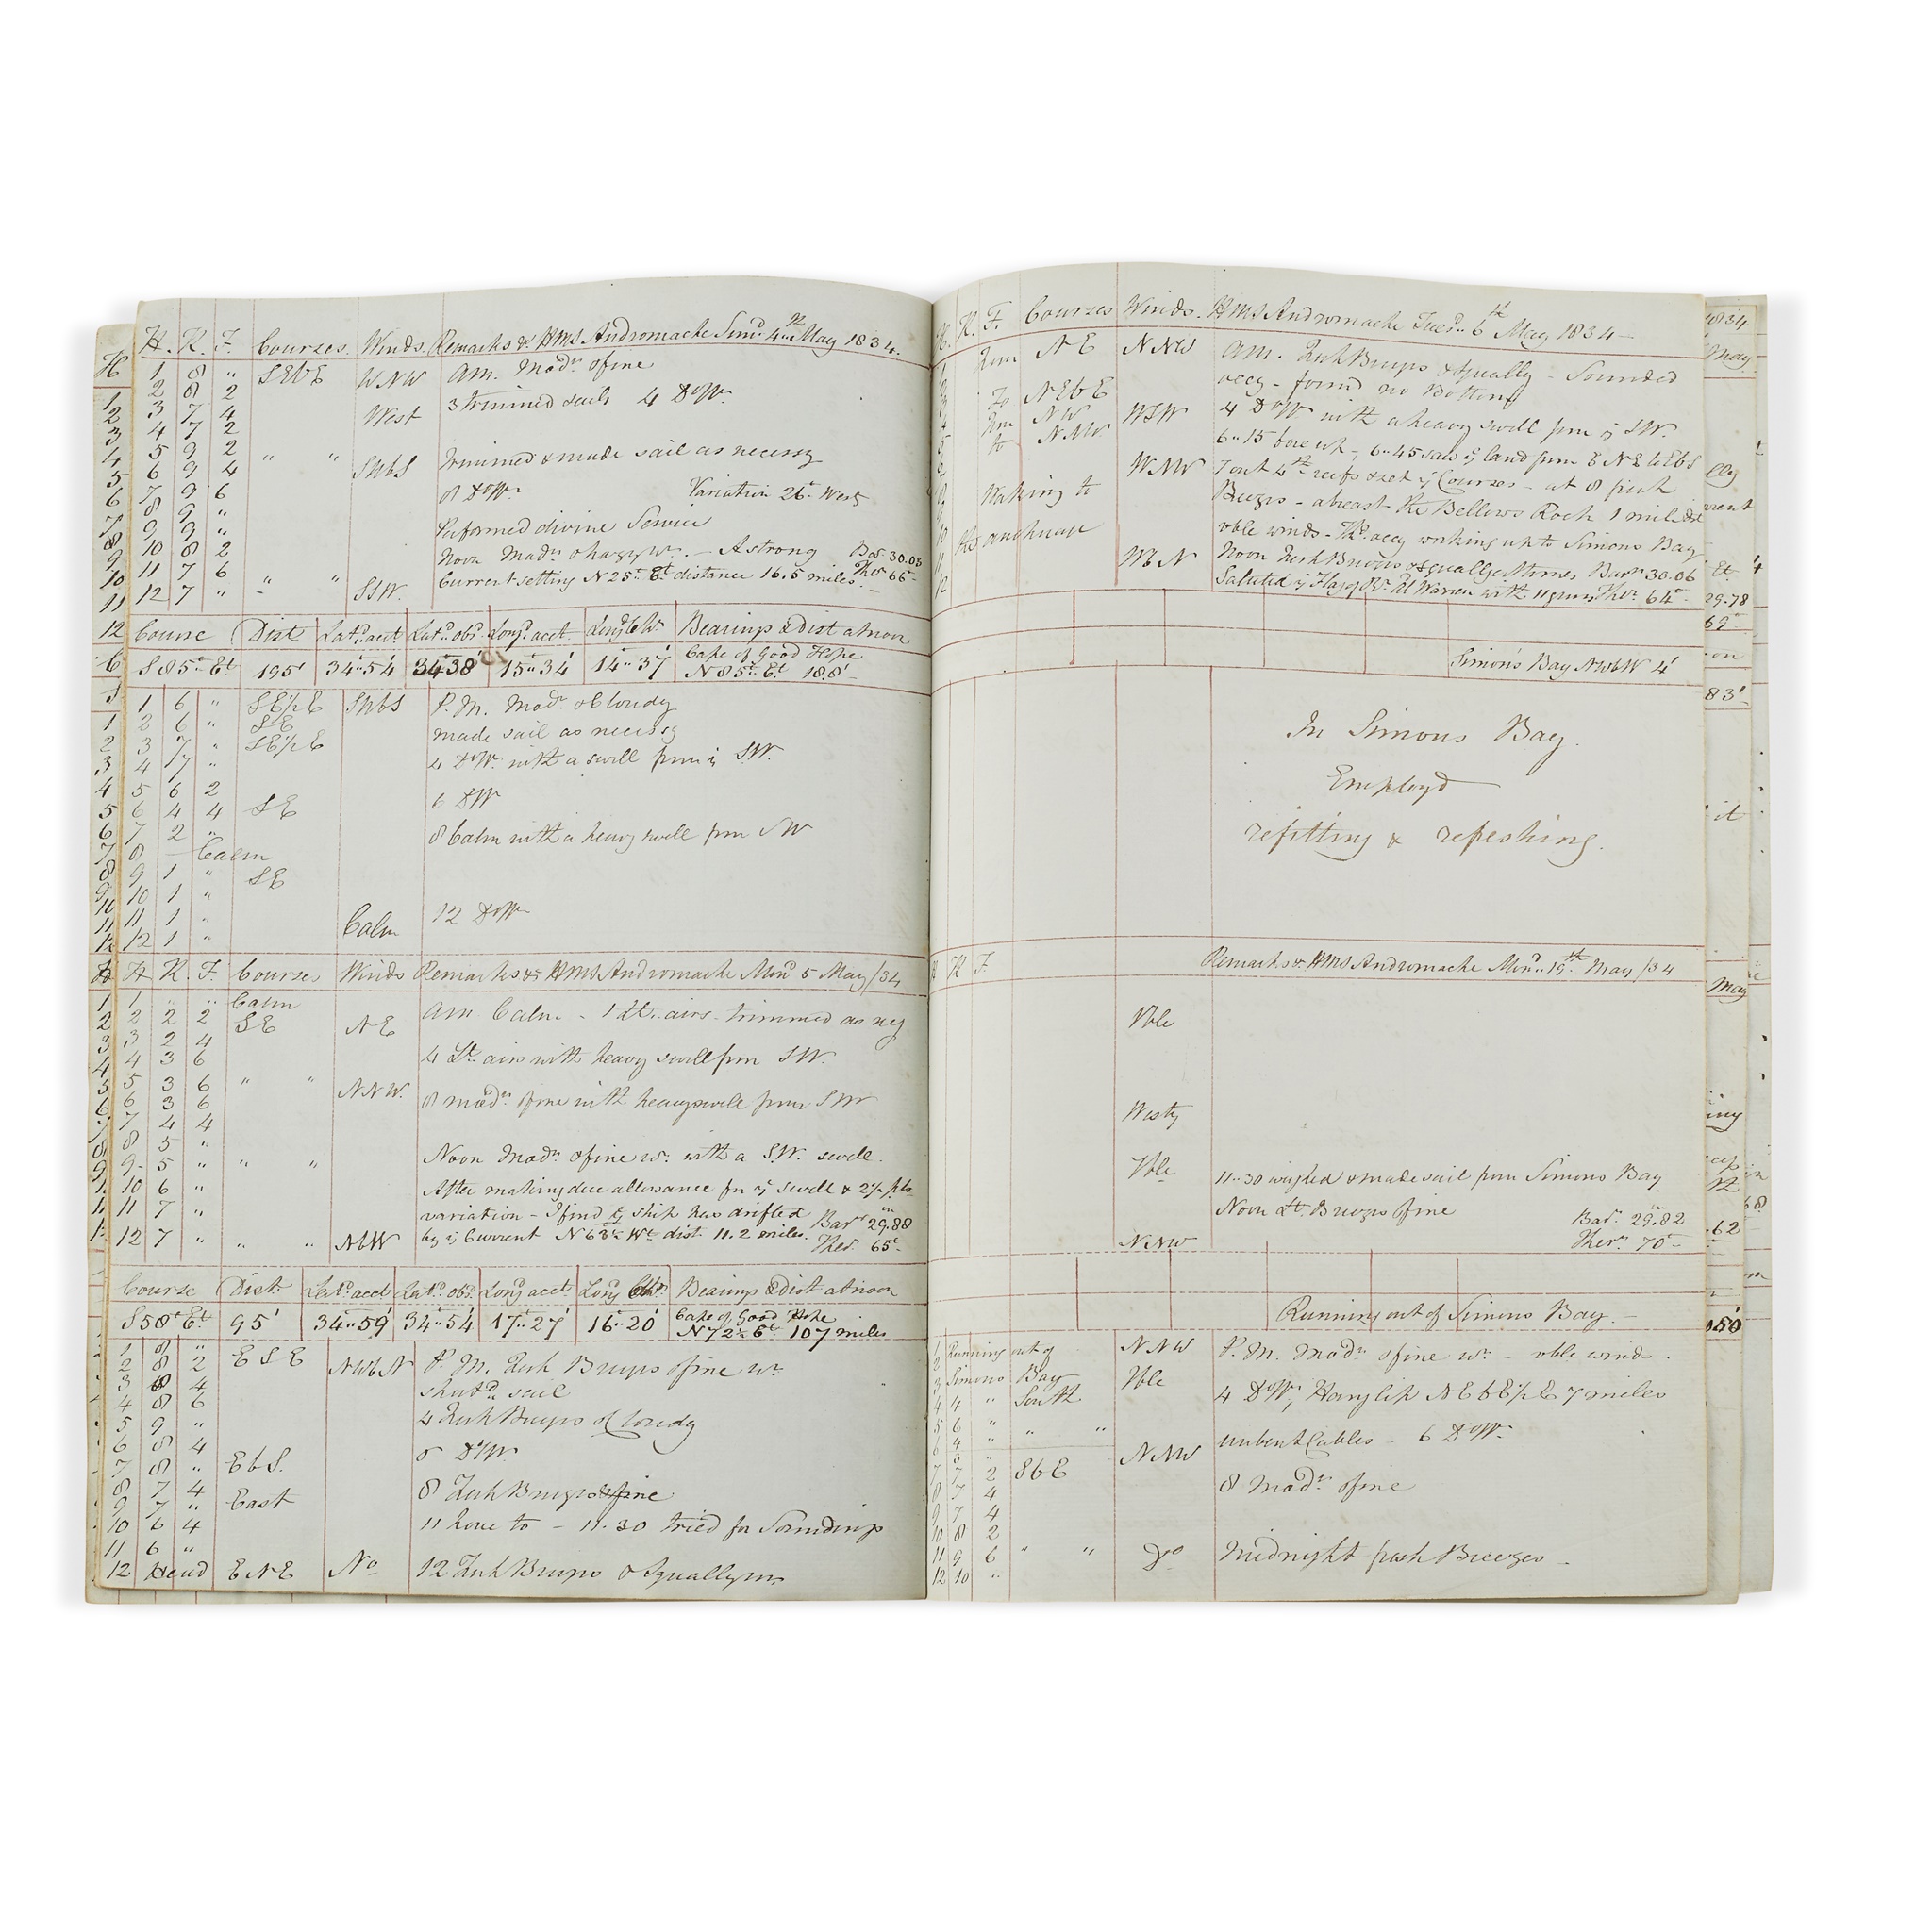 H. K. F. Courses. Winds. Remarks &c HMS Andromache Sund. 4th May 1834.
1 8 " SEbE WNW Am. Modr. & fine
2 8 2
3 7 4 West 3 trimmed sails 4 Do Wr.
4 7 2
5 9 2 " " SWbS trimmed & made sail as necessy
6 9 4
7 9 6 8 Do Wr. Variation 26° West
8 9 "
9 9 " Performed divine Service
10 8 2 Noon Modr. & hazy wr. - A strong Bar. 30.05
11 7 6 Current setting N 25° Et. distance 16.5 miles Ther 66° -
12 7 " " " SSW.
Course Dist Latd. acct Latd. obs. Longd. acct. Longd. Chr. Bearings & Dist at noon
S 85° Et. 195' 34°..54 34°38' 15°..34' 14°..37' Cape of Good Hope N 85° Et. 188' -
1 6 " SE½E SWbS P.M. Modr. & Cloudy
2 6 " SE made sail as necessy
3 7 " SE½E
4 7 " 4 Do Wr. with a swell from ye SW.
5 6 2
6 4 4 SE 6 Do Wr
7 2 " 8 Calm with a heavy swell from SW
8 - Calm
9 1 " SE
10 1 "
11 1 " 12 Do Wr
12 1 " Calm
H K. F. Courses Winds Remarks &c HMS Andromache Mond. 5 May /34
1 " " Calm Am Calm - 1 Lt. airs - trimmed as necy
2 2 2 SE NE
3 2 4
4 3 6 4 Lt. airs with heavy swell from SW.
5 3 6 " " NNW.
6 3 6 8 modr. & fine with heavy swell from SW
7 4 4
8 5 "
9 - 5 " " " Noon Modr. & fine wr. with a S.W. swell.
10 6 " After making due allowance for ye swell & 2½ pts
11 7 " variation - I find ye ship has drifted Barr 29.88
12 7 " " " NbW by ye Current N 68° Wt. dist 11.2 miles. Ther. 65° -
Course Dist. Latd. acct Latd. obs. Longd. acct. Longd. Chr. Bearings & Dist at noon
S 58° Et. 95' 34°..59' 34°..54' 17°..27' 16°..20' Cape of Good Hope N 72½° Et. 107 miles
1 8 " ESE NWbN P.M. Fresh Breezes & fine wr.
2 8 2
3 8 4 shortd. sail
4 8 6 4 Fresh Breezes & Cloudy
5 9 "
6 8 4 6 Do Wr.
7 8 " EbS.
8 7 4 8 Fresh Breezes & fine
9 7 " East
10 6 4 11 hove to - 11.30 tried for Soundings
11 6 "
12 Head ENE No. 12 Fresh Breezes & Squally wr.
H. K. F. Courses Winds. HMS Andromache Tuesd. 6th May 1834 -
from NE NNW Am. Fresh Breezes & squally - Sounded
To NEbE occy - found no Bottom
from NW WSW 4 Do Wr with a heavy swell from ye SW.
to NNW. 6..15 bore up - 6..45 saw ye land from ENE to EbS
WNW 1 out 4th reefs & set ye Courses - at 8 fresh
Working to Breezes - abreast the Bellows Rock 1 mile dist
the anchorage vble winds - Th. occy working up to Simons Bay
WbN Noon Fresh Breezes & squally at times Barr 30.06
Saluted ye Flag of Rr. Ad Warren with 11 guns Ther. 64° -
Simon's Bay NWbW 4'
In Simons Bay.
Employd
refitting & refreshing.
H K F. Remarks &c HMS Andromache Mond. 19th. May /34
Vble
Westy
Vble 11..30 weighed & made sail from Simons Bay
Noon Lt. Breezes & fine Bar. 29.82
NNW Ther. 70° -
Running out of Simons Bay. -
1 Running out of NNW P.M. Modr. & fine wr. - vble wind -
2
3 Simons Bay Vble
4 4 " South 4 Do Wr, Hanglip NEbE½E 7 miles
5 6 " " "
6 4 " unbent Cables - 6 Do Wr.
7 7 2 SbE NNW
8 7 4 8 Modr. & fine
9 7 4
10 8 2
11 9 6 " " Do Midnight fresh Breezes -
12 10 "